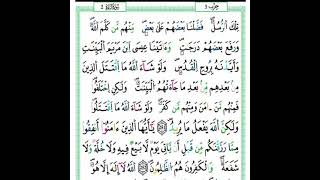 سُورَةُ الْبَقَرَة 2
جُزْء 3
تِلْكَ الرُّسُلُ فَضَّلْنَا بَعْضَهُمْ عَلَىٰ بَعْضٍ مِنْهُمْ مَنْ كَلَّمَ اللَّهُ
وَرَفَعَ بَعْضَهُمْ دَرَجَاتٍ وَءَاتَيْنَا عِيسَى ابْنَ مَرْيَمَ الْبَيِّنَاتِ
وَأَيَّدْنَاهُ بِرُوحِ الْقُدُسِ وَلَوْ شَاءَ اللَّهُ مَا اقْتَتَلَ الَّذِينَ
مِنْ بَعْدِهِمْ مِنْ بَعْدِ مَا جَاءَتْهُمُ الْبَيِّنَاتُ وَلَٰكِنِ اخْتَلَفُوا
فَمِنْهُمْ مَنْ ءَامَنَ وَمِنْهُمْ مَنْ كَفَرَ وَلَوْ شَاءَ اللَّهُ مَا اقْتَتَلُوا
وَلَٰكِنَّ اللَّهَ يَفْعَلُ مَا يُرِيدُ يَا أَيُّهَا الَّذِينَ ءَامَنُوا أَنْفِقُوا
مِمَّا رَزَقْنَاكُمْ مِنْ قَبْلِ أَنْ يَأْتِيَ يَوْمٌ لَا بَيْعٌ فِيهِ وَلَا خُلَّةٌ وَلَا
شَفَاعَةٌ وَالْكَافِرُونَ هُمُ الظَّالِمُونَ اللَّهُ لَا إِلَٰهَ إِلَّا هُوَ